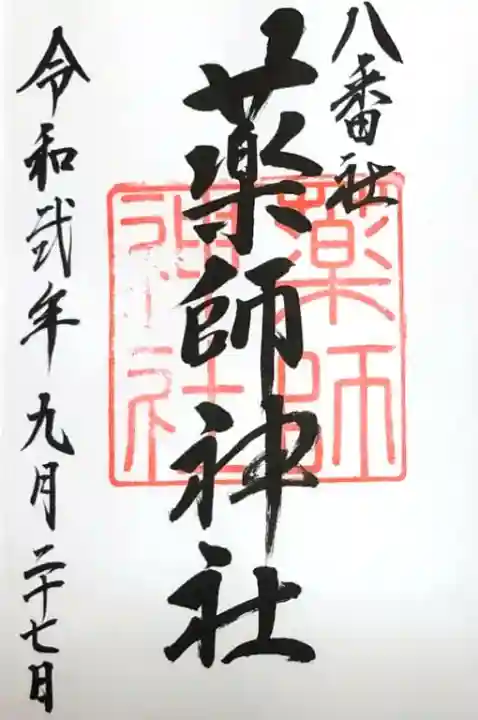 八番社
薬師神社
薬師
神社
令和弐年九月二十七日